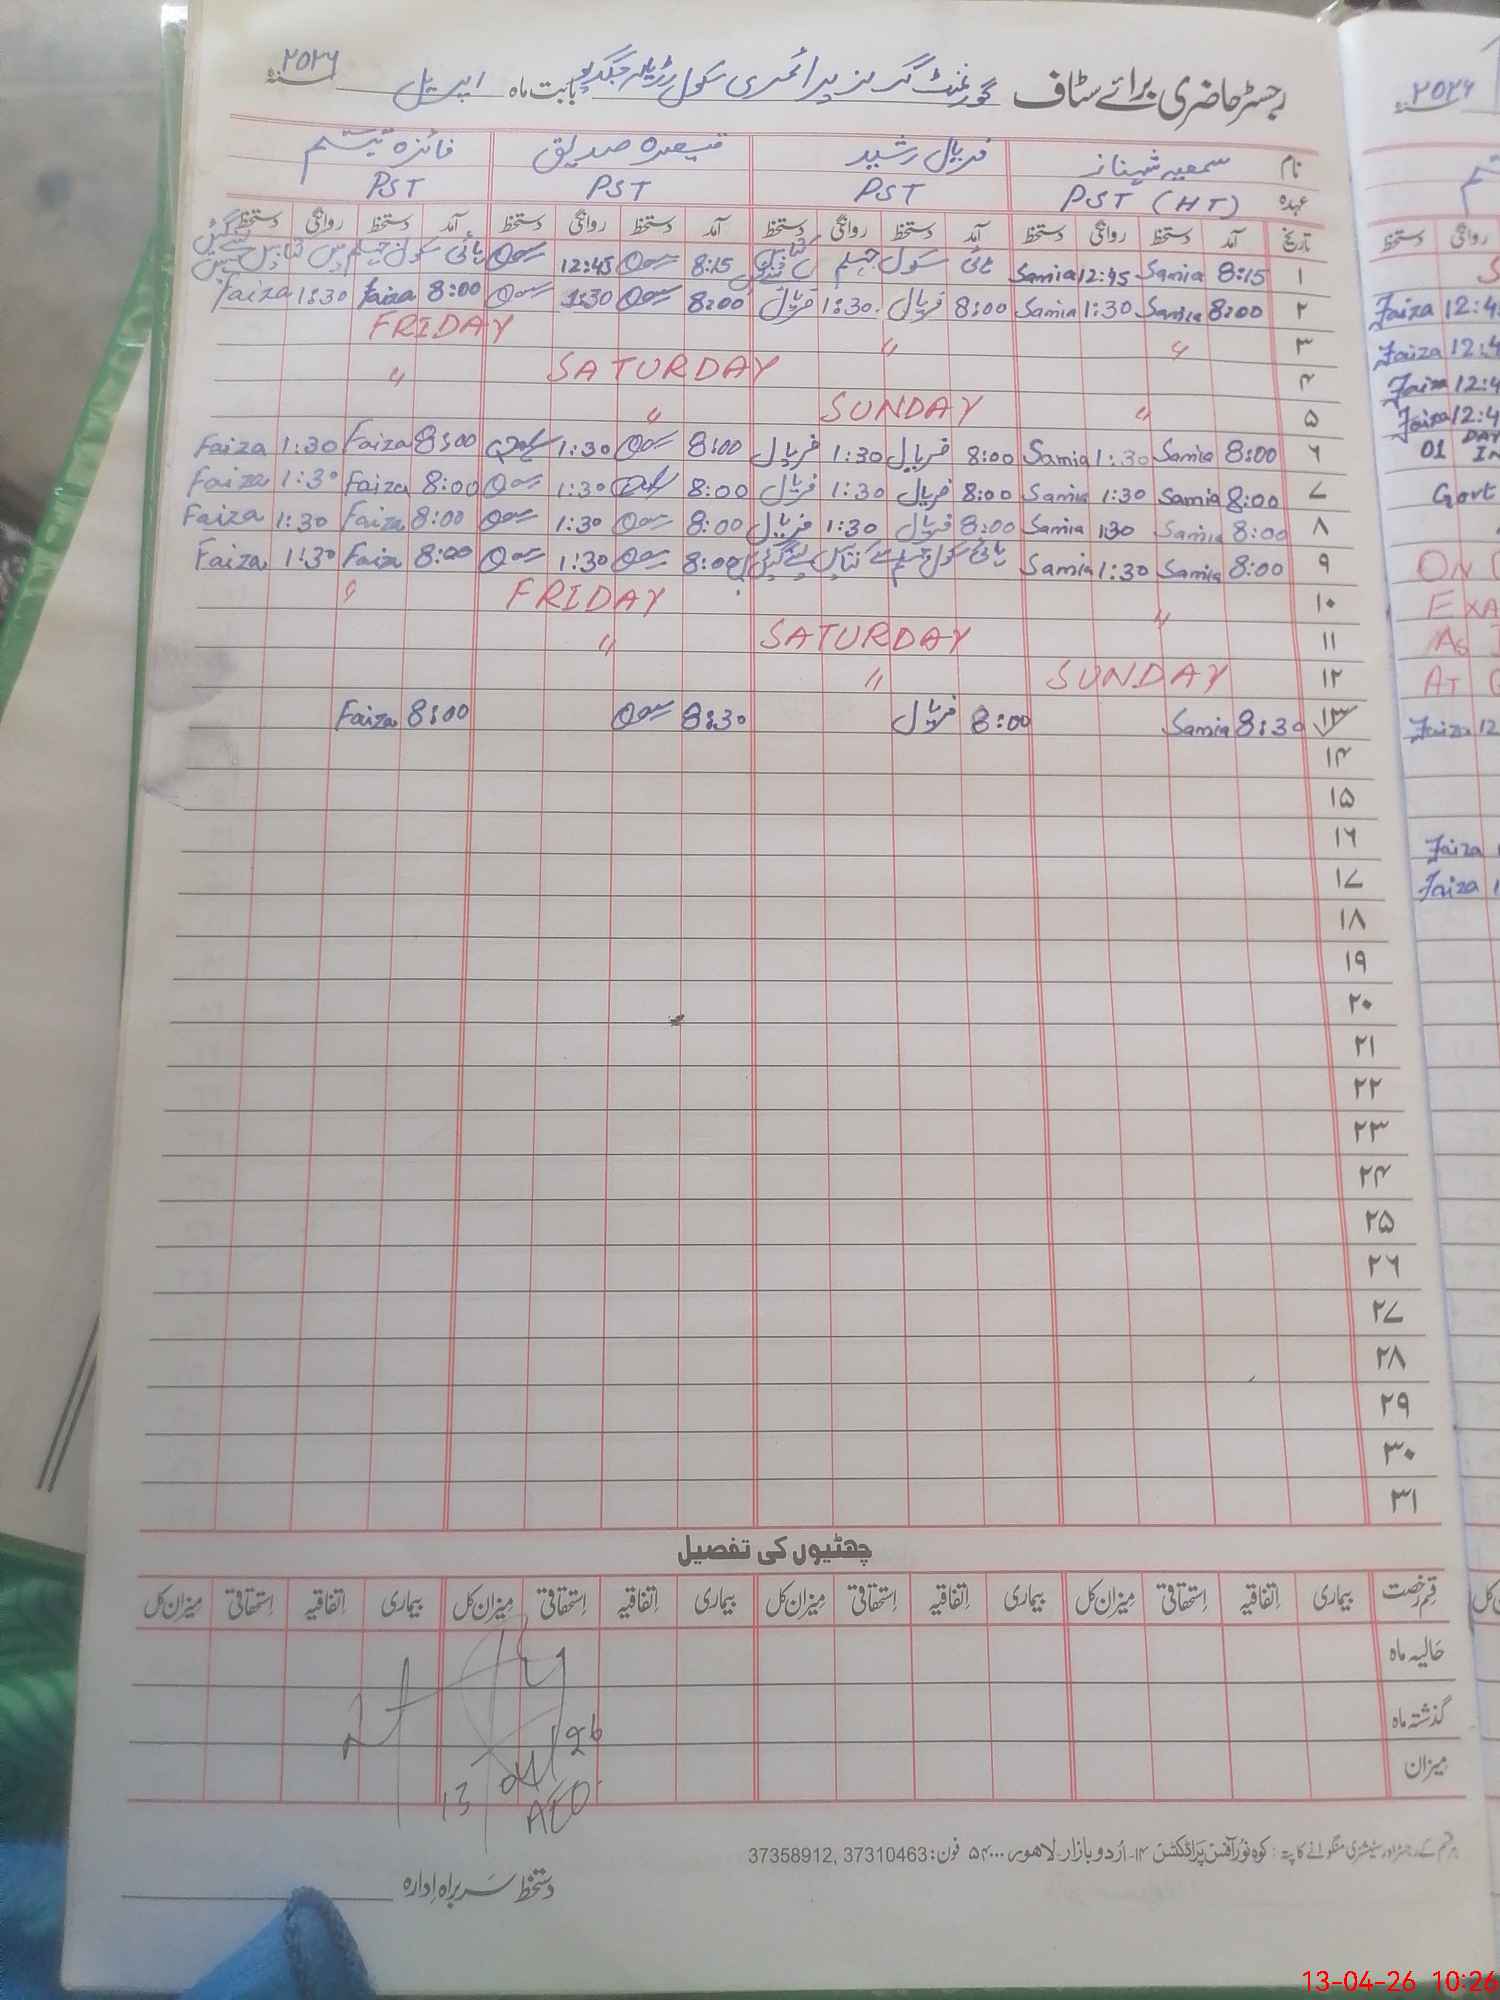 رجسٹر حاضری برائے سٹاف گورنمنٹ گرلز پرائمری سکول بابت ماہ اپریل سنہ ۲۰۲۶
نام سمعیہ شہناز فریال رشید صدیق فائزہ تبسم
عہدہ PST (HT) PST PST PST
تاریخ آمد دستخط روانگی دستخط آمد دستخط روانگی دستخط آمد دستخط روانگی دستخط آمد دستخط روانگی دستخط
۱ 8:15 Samia 12:45 Samia ہائی سکول 8:15 12:45 ہائی سکول
۲ 8:00 Samia 1:30 Samia 8:00 فریال 1:30 فریال 8:00 1:30 8:00 Faiza 1:30 Faiza
۳ " " FRIDAY
۴ SATURDAY "
۵ " SUNDAY "
۶ 8:00 Samia 1:30 Samia 8:00 فریال 1:30 فریال 8:00 1:30 8:00 Faiza 1:30 Faiza
۷ 8:00 Samia 1:30 Samia 8:00 فریال 1:30 فریال 8:00 1:30 8:00 Faiza 1:30 Faiza
۸ 8:00 Samia 1:30 Samia 8:00 فریال 1:30 فریال 8:00 1:30 8:00 Faiza 1:30 Faiza
۹ 8:00 Samia 1:30 Samia ہائی سکول 8:00 1:30 8:00 Faiza 1:30 Faiza
۱۰ " FRIDAY "
۱۱ SATURDAY "
۱۲ SUNDAY " "
۱۳ 8:30 Samia 8:00 فریال 8:30 8:00 Faiza
۱۴
۱۵
۱۶
۱۷
۱۸
۱۹
۲۰
۲۱
۲۲
۲۳
۲۴
۲۵
۲۶
۲۷
۲۸
۲۹
۳۰
۳۱
چھٹیوں کی تفصیل
قسم رخصت بیماری اتفاقیہ استحقاقی میزان کل بیماری اتفاقیہ استحقاقی میزان کل بیماری اتفاقیہ استحقاقی میزان کل بیماری اتفاقیہ استحقاقی میزان کل
حالیہ ماہ
گذشتہ ماہ
میزان
13/04/26
AEO
ہر قسم کے رجسٹر اور سٹیشنری منگوانے کا پتہ: کوہ نور آفس پراڈکٹس ۱۴-اُردو بازار-لاہور ۵۴۰۰۰ فون: 37310463, 37358912
دستخط سربراہ ادارہ
۲۰۲۶
دستخط روانگی
Faiza
Faiza 12:4
Faiza 12:4
Faiza 12:4
01 DAY
Govt
ON
EXA
AS
AT
Faiza 12
Faiza
Faiza
13-04-26 10:26